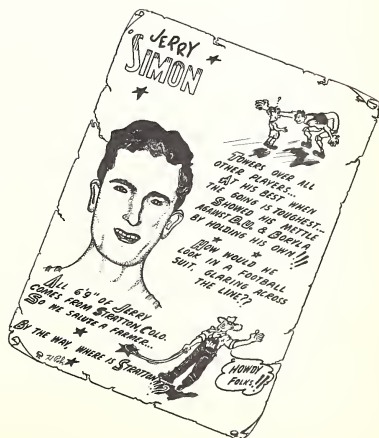 JERRY
SIMON
TOWERS OVER ALL
OTHER PLAYERS...
AT HIS BEST WHEN
THE GOING IS TOUGHEST..
SHOWED HIS METTLE
AGAINST & BORYLA
BY HOLDING HIS OWN!!
HOW WOULD HE
LOOK IN A FOOTBALL
SUIT, GLARING ACROSS
THE LINE??
ALL 6'9" OF JERRY
COMES FROM STRATTON, COLO.
SO WE SALUTE A FARMER..
BY THE WAY, WHERE IS STRATTON
HOWDY
FOLKS!!